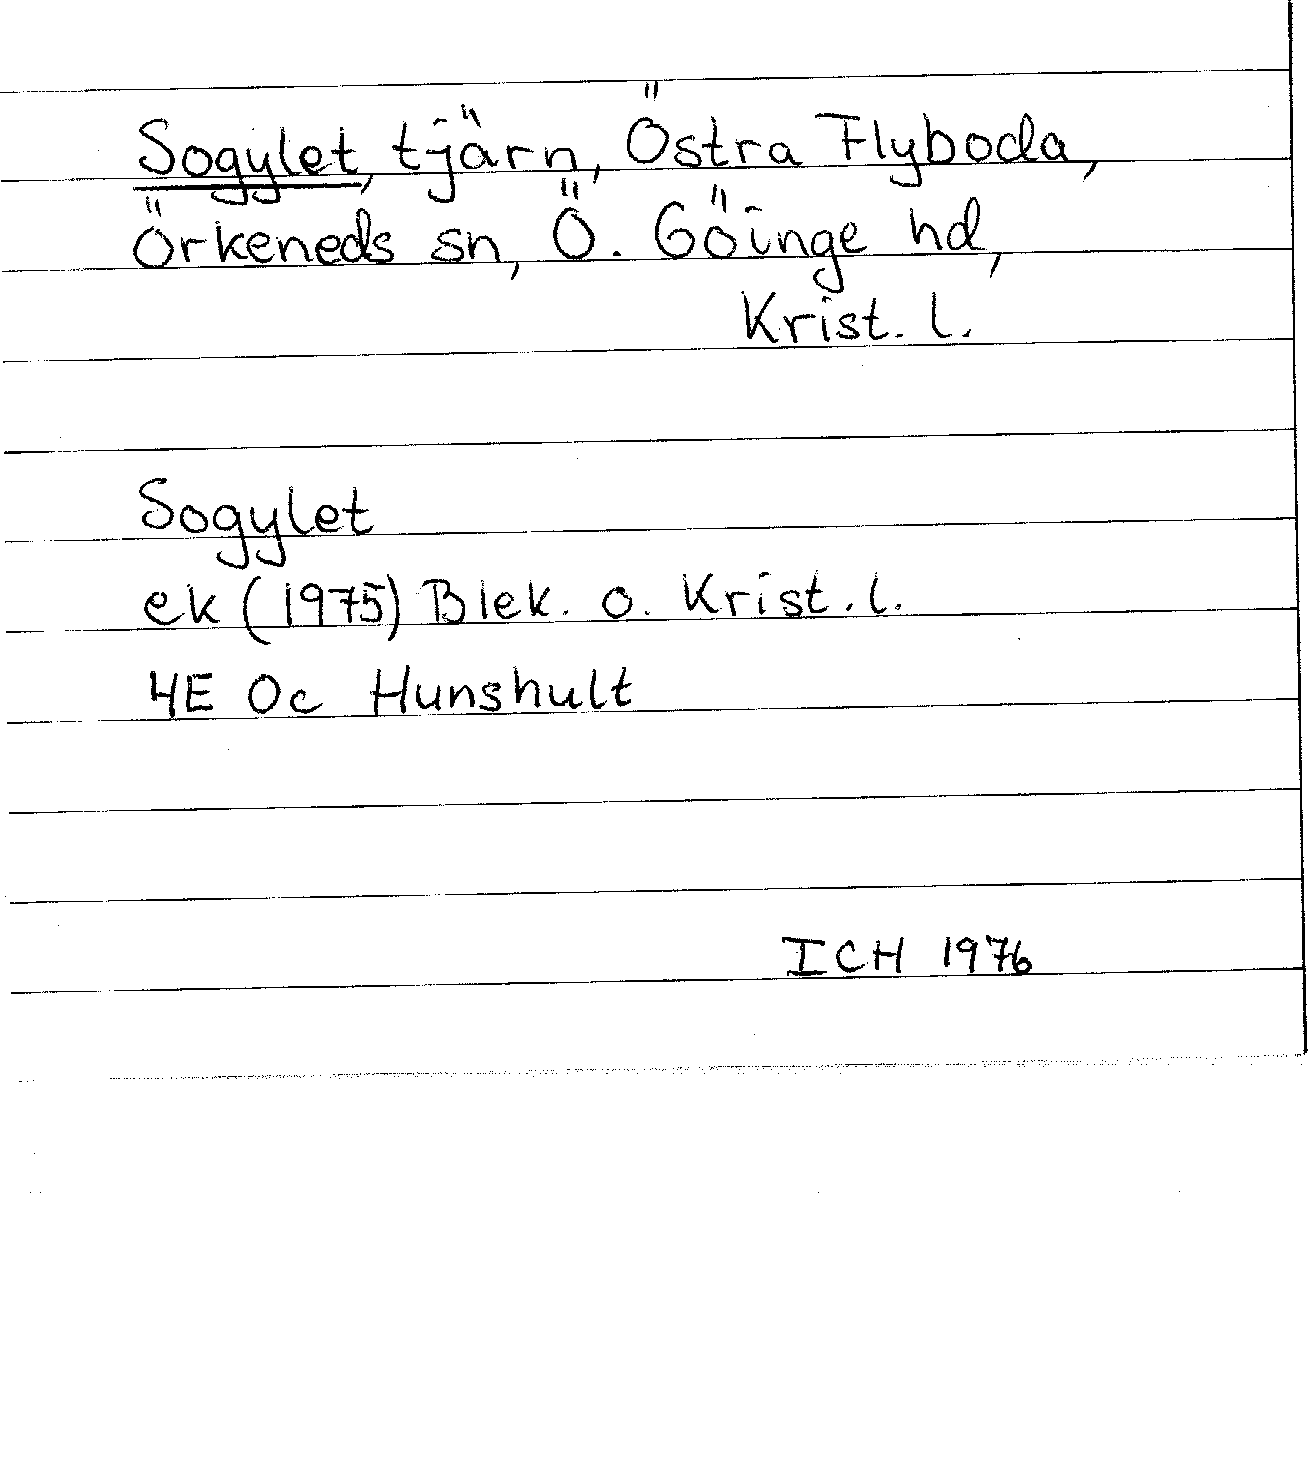 Sogylet, tjärn, Östra Flyboda,
Örkeneds sn, Ö. Göinge hd,
Krist. l.
Sogylet
ek (1975) Blek. o. Krist. l.
4E Oc Hunshult
ICH 1976